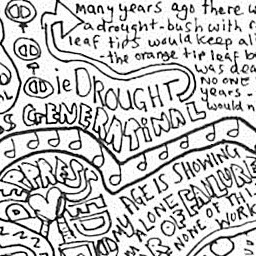 many years ago there w
a drought-bush with r
leaf tips would keep ali
-the orange tip leaf b
was dea
no one
years -
would n
ie DROUGHT
IS GENERATINAL
PPRESS
ED
MY AGE IS SHOWING
ALONE
OR OF FAILURE
NONE OF THIS
WORK